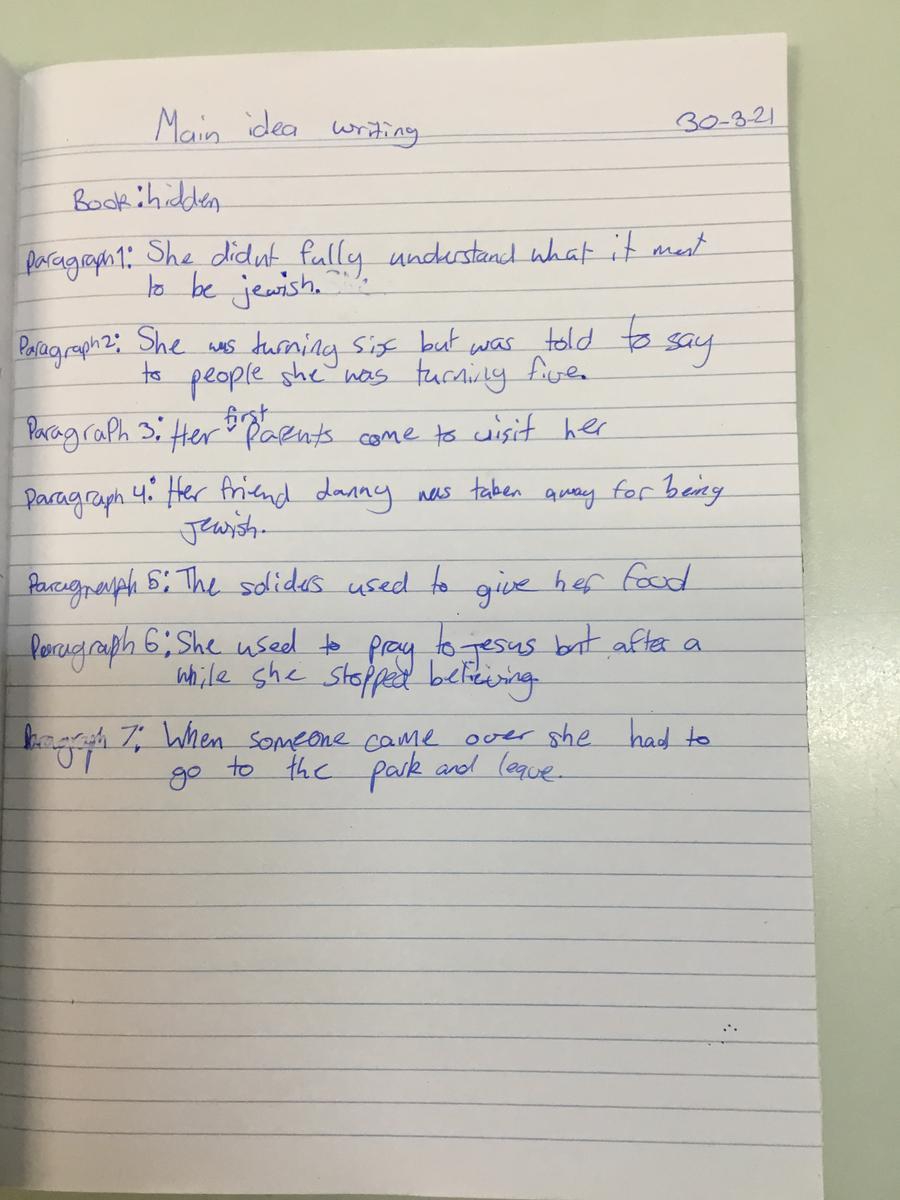 Main idea writing 30-3-21
Book: hidden
Paragraph 1: She didnt fully understand what it ment
to be jewish.
Paragraph 2: She was turning six but was told to say
to people she was turning five.
Paragraph 3: Her first parents come to visit her
Paragraph 4: Her friend danny was taken away for being
Jewish.
Paragraph 5: The soliders used to give her food
Paragraph 6: She used to pray to Jesus but after a
while she stopped believing
Paragraph 7: When someone came over she had to
go to the park and leave.